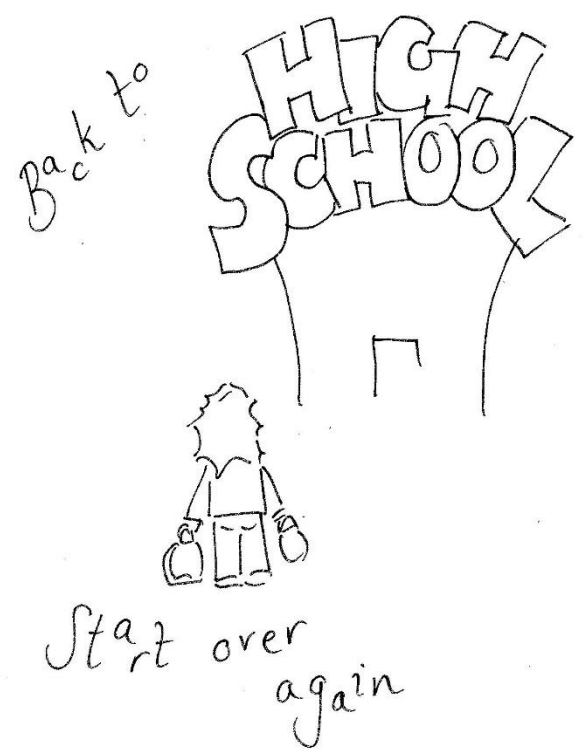 Back to
HIGH
SCHOOL
Start over
again